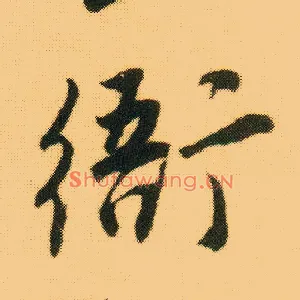 衙
Shufawang.CN